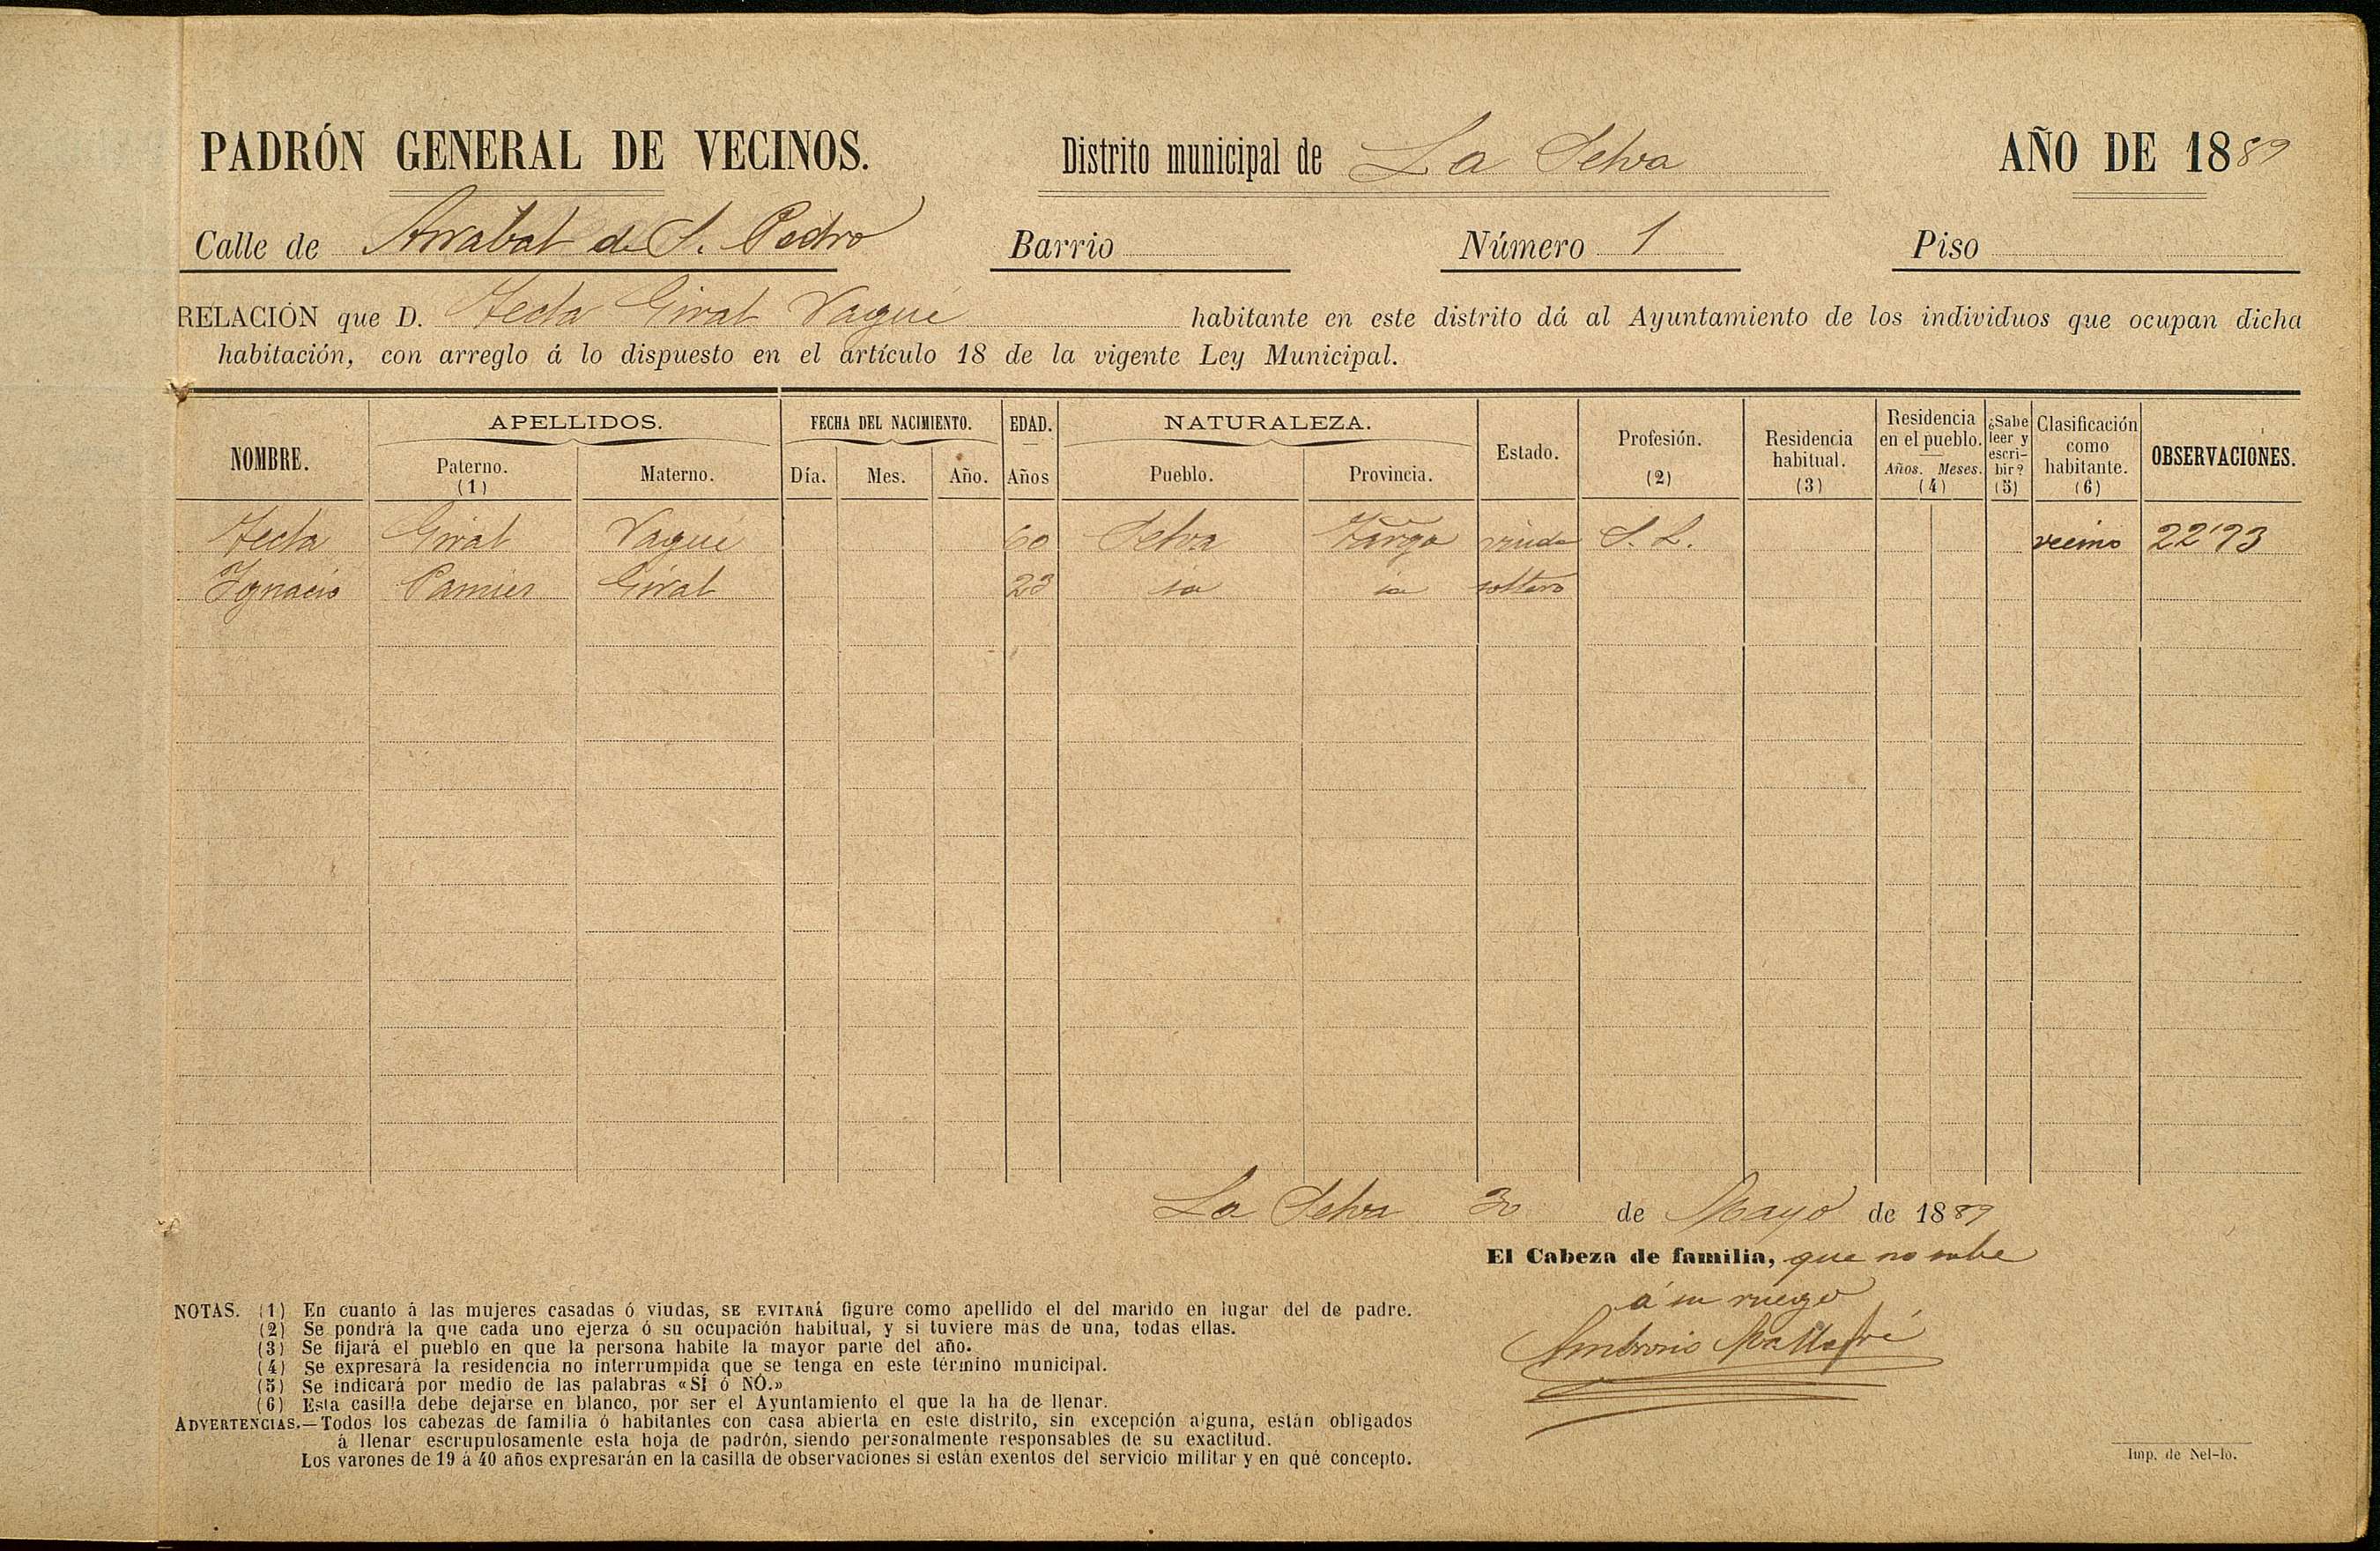 PADRÓN GENERAL DE VECINOS. Distrito municipal de La Selva AÑO DE 1889
Calle de Arrabal de S. Pedro Barrio Número 1 Piso
RELACIÓN que D. Tecla Giral Vagué habitante en este distrito dá al Ayuntamiento de los individuos que ocupan dicha
habitación, con arreglo á lo dispuesto en el artículo 18 de la vigente Ley Municipal.
NOMBRE. APELLIDOS. FECHA DEL NACIMIENTO. EDAD. NATURALEZA. Estado. Profesión. Residencia habitual. Residencia en el pueblo. ¿Sabe leer y escribir? Clasificación como habitante. OBSERVACIONES.
Paterno. Materno. Día. Mes. Año. Años Pueblo. Provincia. (2) (3) Años. Meses. (4) (5) (6)
(1)
Tecla Giral Vagué 60 Selva Tarrga viuda S. L. vecino 22'73
Ignacio Pamies Giral 23 id id soltero
La Selva 30 de Mayo de 1889
El Cabeza de familia, que no sabe
á su ruego
Ambrosio Mallafré
NOTAS. (1) En cuanto á las mujeres casadas ó viudas, SE EVITARÁ figure como apellido el del marido en lugar del de padre.
(2) Se pondrá la que cada uno ejerza ó su ocupación habitual, y si tuviere más de una, todas ellas.
(3) Se fijará el pueblo en que la persona habite la mayor parte del año.
(4) Se expresará la residencia no interrumpida que se tenga en este término municipal.
(5) Se indicará por medio de las palabras «SÍ ó NÓ.»
(6) Esta casilla debe dejarse en blanco, por ser el Ayuntamiento el que la ha de llenar.
ADVERTENCIAS.—Todos los cabezas de familia ó habitantes con casa abierta en este distrito, sin excepción alguna, están obligados
á llenar escrupulosamente esta hoja de padrón, siendo personalmente responsables de su exactitud.
Los varones de 19 á 40 años expresarán en la casilla de observaciones si están exentos del servicio militar y en qué concepto.
Imp. de Nel-lo.